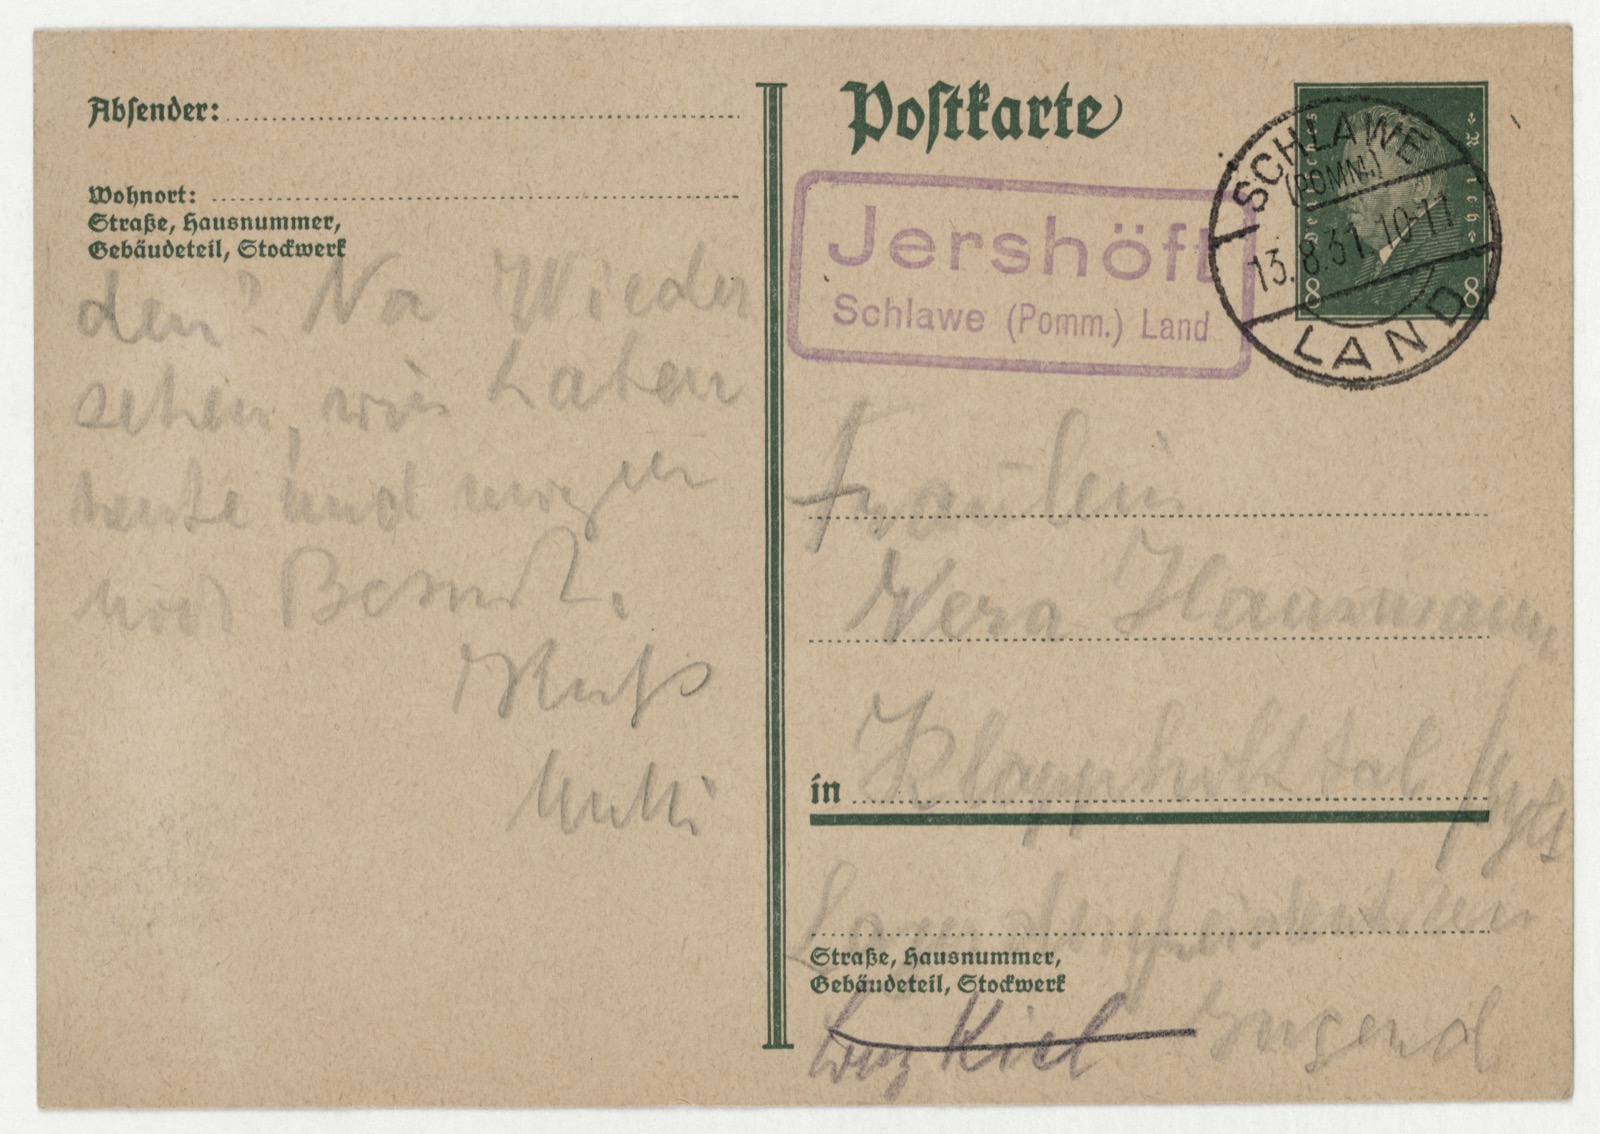 Absender:
Wohnort:
Straße, Hausnummer,
Gebäudeteil, Stockwerk
den? Na Wieder
sehen, wir haben
heute und morgen
noch Besuch.
Kuss
Mutti
Postkarte
Deutsches Reich
8 8
SCHLAWE
(POMM.)
13.8.31.10-11
LAND
Jershöft
Schlawe (Pomm.) Land
Fräulein
Vera Hausmann
in Klappholttal / Sylt
Straße, Hausnummer,
Gebäudeteil, Stockwerk
Kiel Jugend